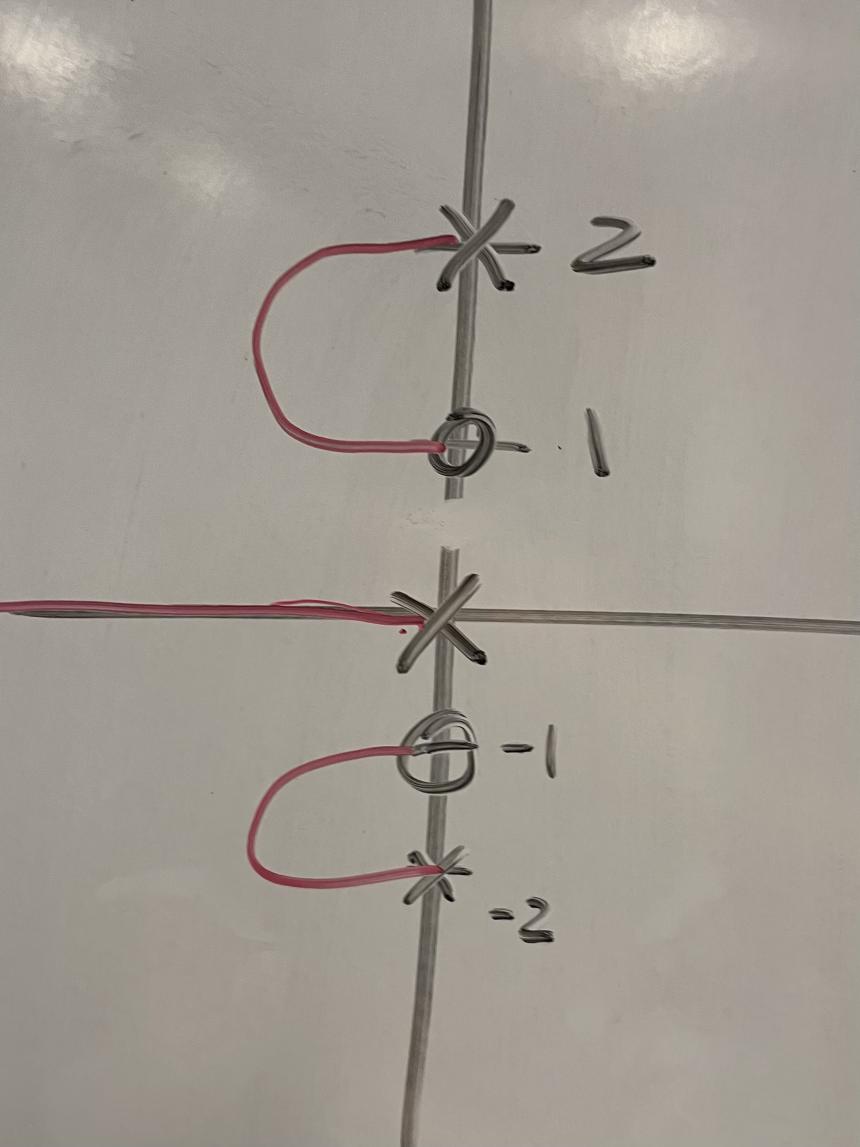 2
1
-1
-2